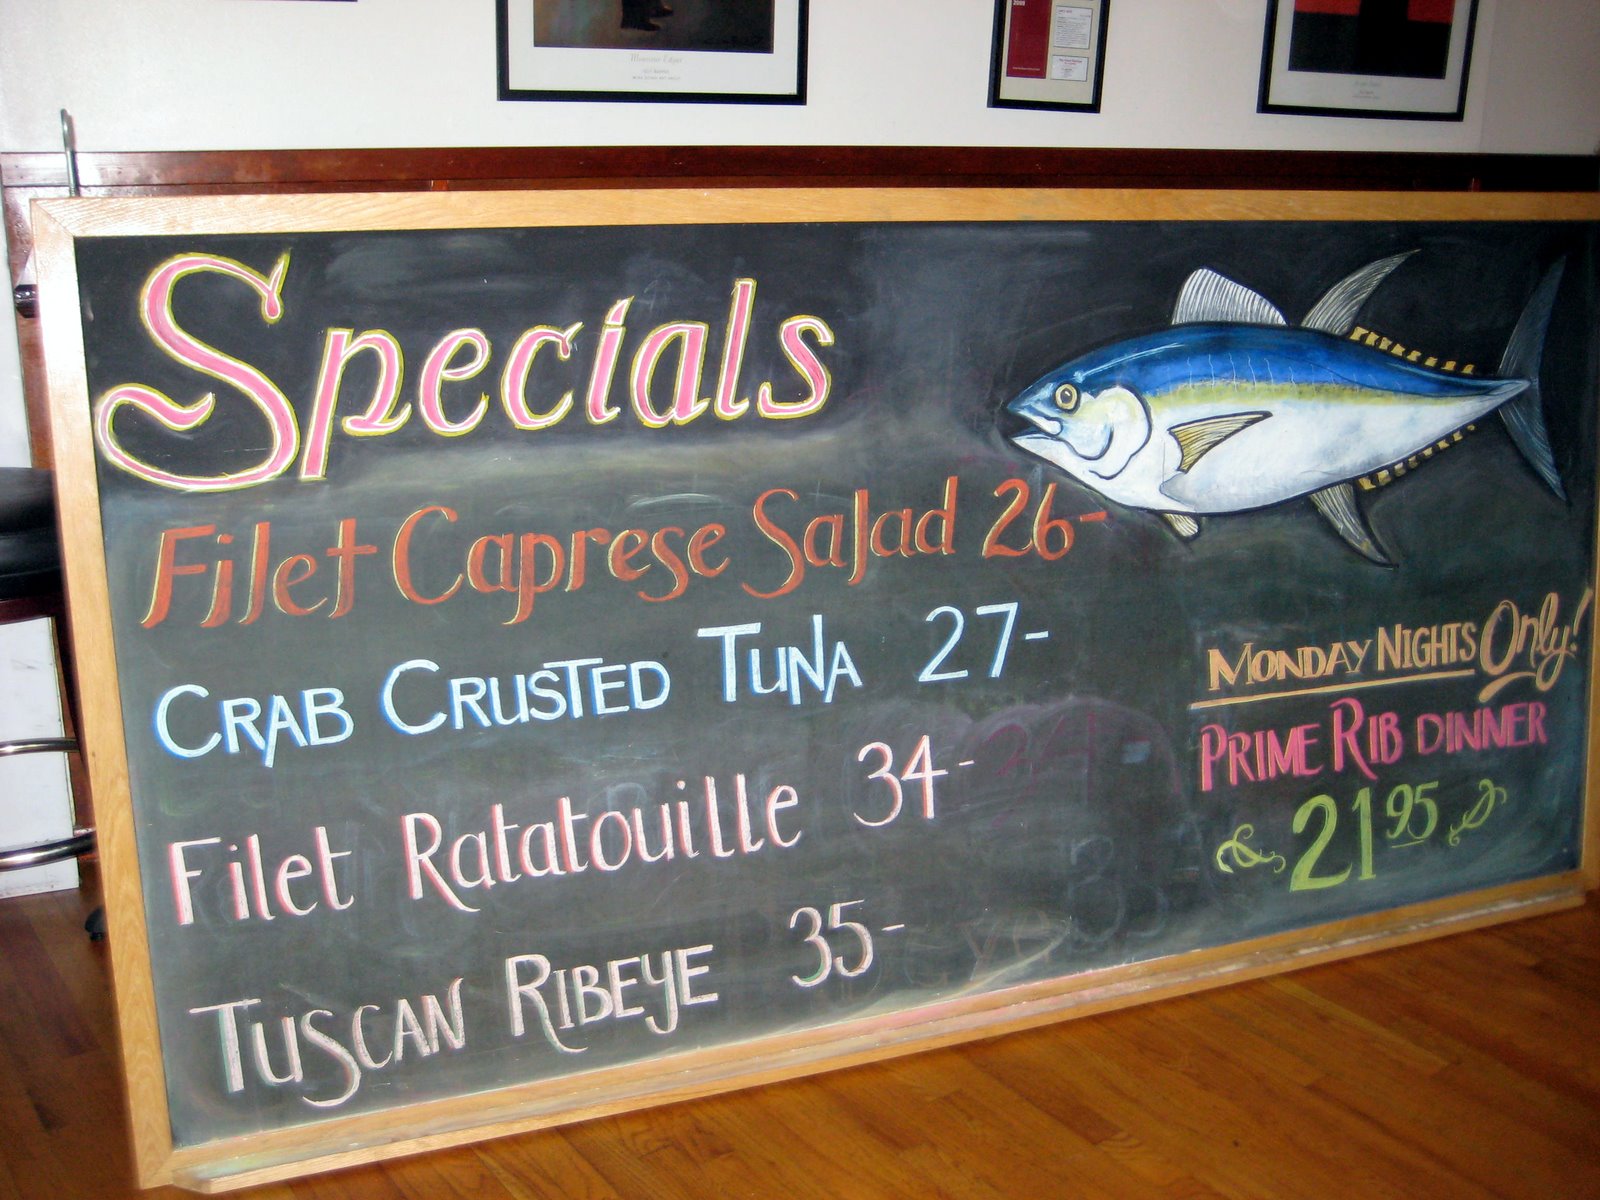 Specials
Filet Caprese Salad 26-
CRAB CRUSTED TUNA 27-
Filet Ratatouille 34-
TUSCAN RIBEYE 35-
MONDAY NIGHTS Only!
PRIME RIB DINNER
21 95